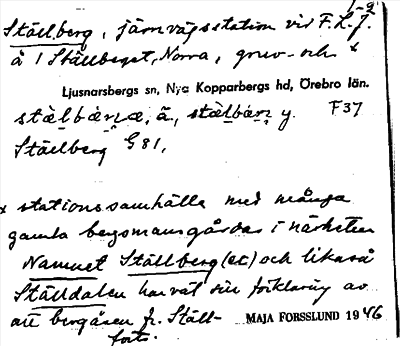 1-2
Ställberg, järnvägsstation vid F.L.J.
å 1 Ställberget, Norra, gruv- och x
Ljusnarsbergs sn, Nya Kopparbergs hd, Örebro län.
stàl̥bár̥æ, ä, stàl̥bár̥ y. F37
Ställberg G81,
x stationssamhälle med många
gamla bergsmansgårdar i närheten
Namnet Ställberg(et) och likaså
Ställdalen har väl sin förklaring av
att bergåsen fr. Ställ-
forts.
MAJA FORSSLUND 1946